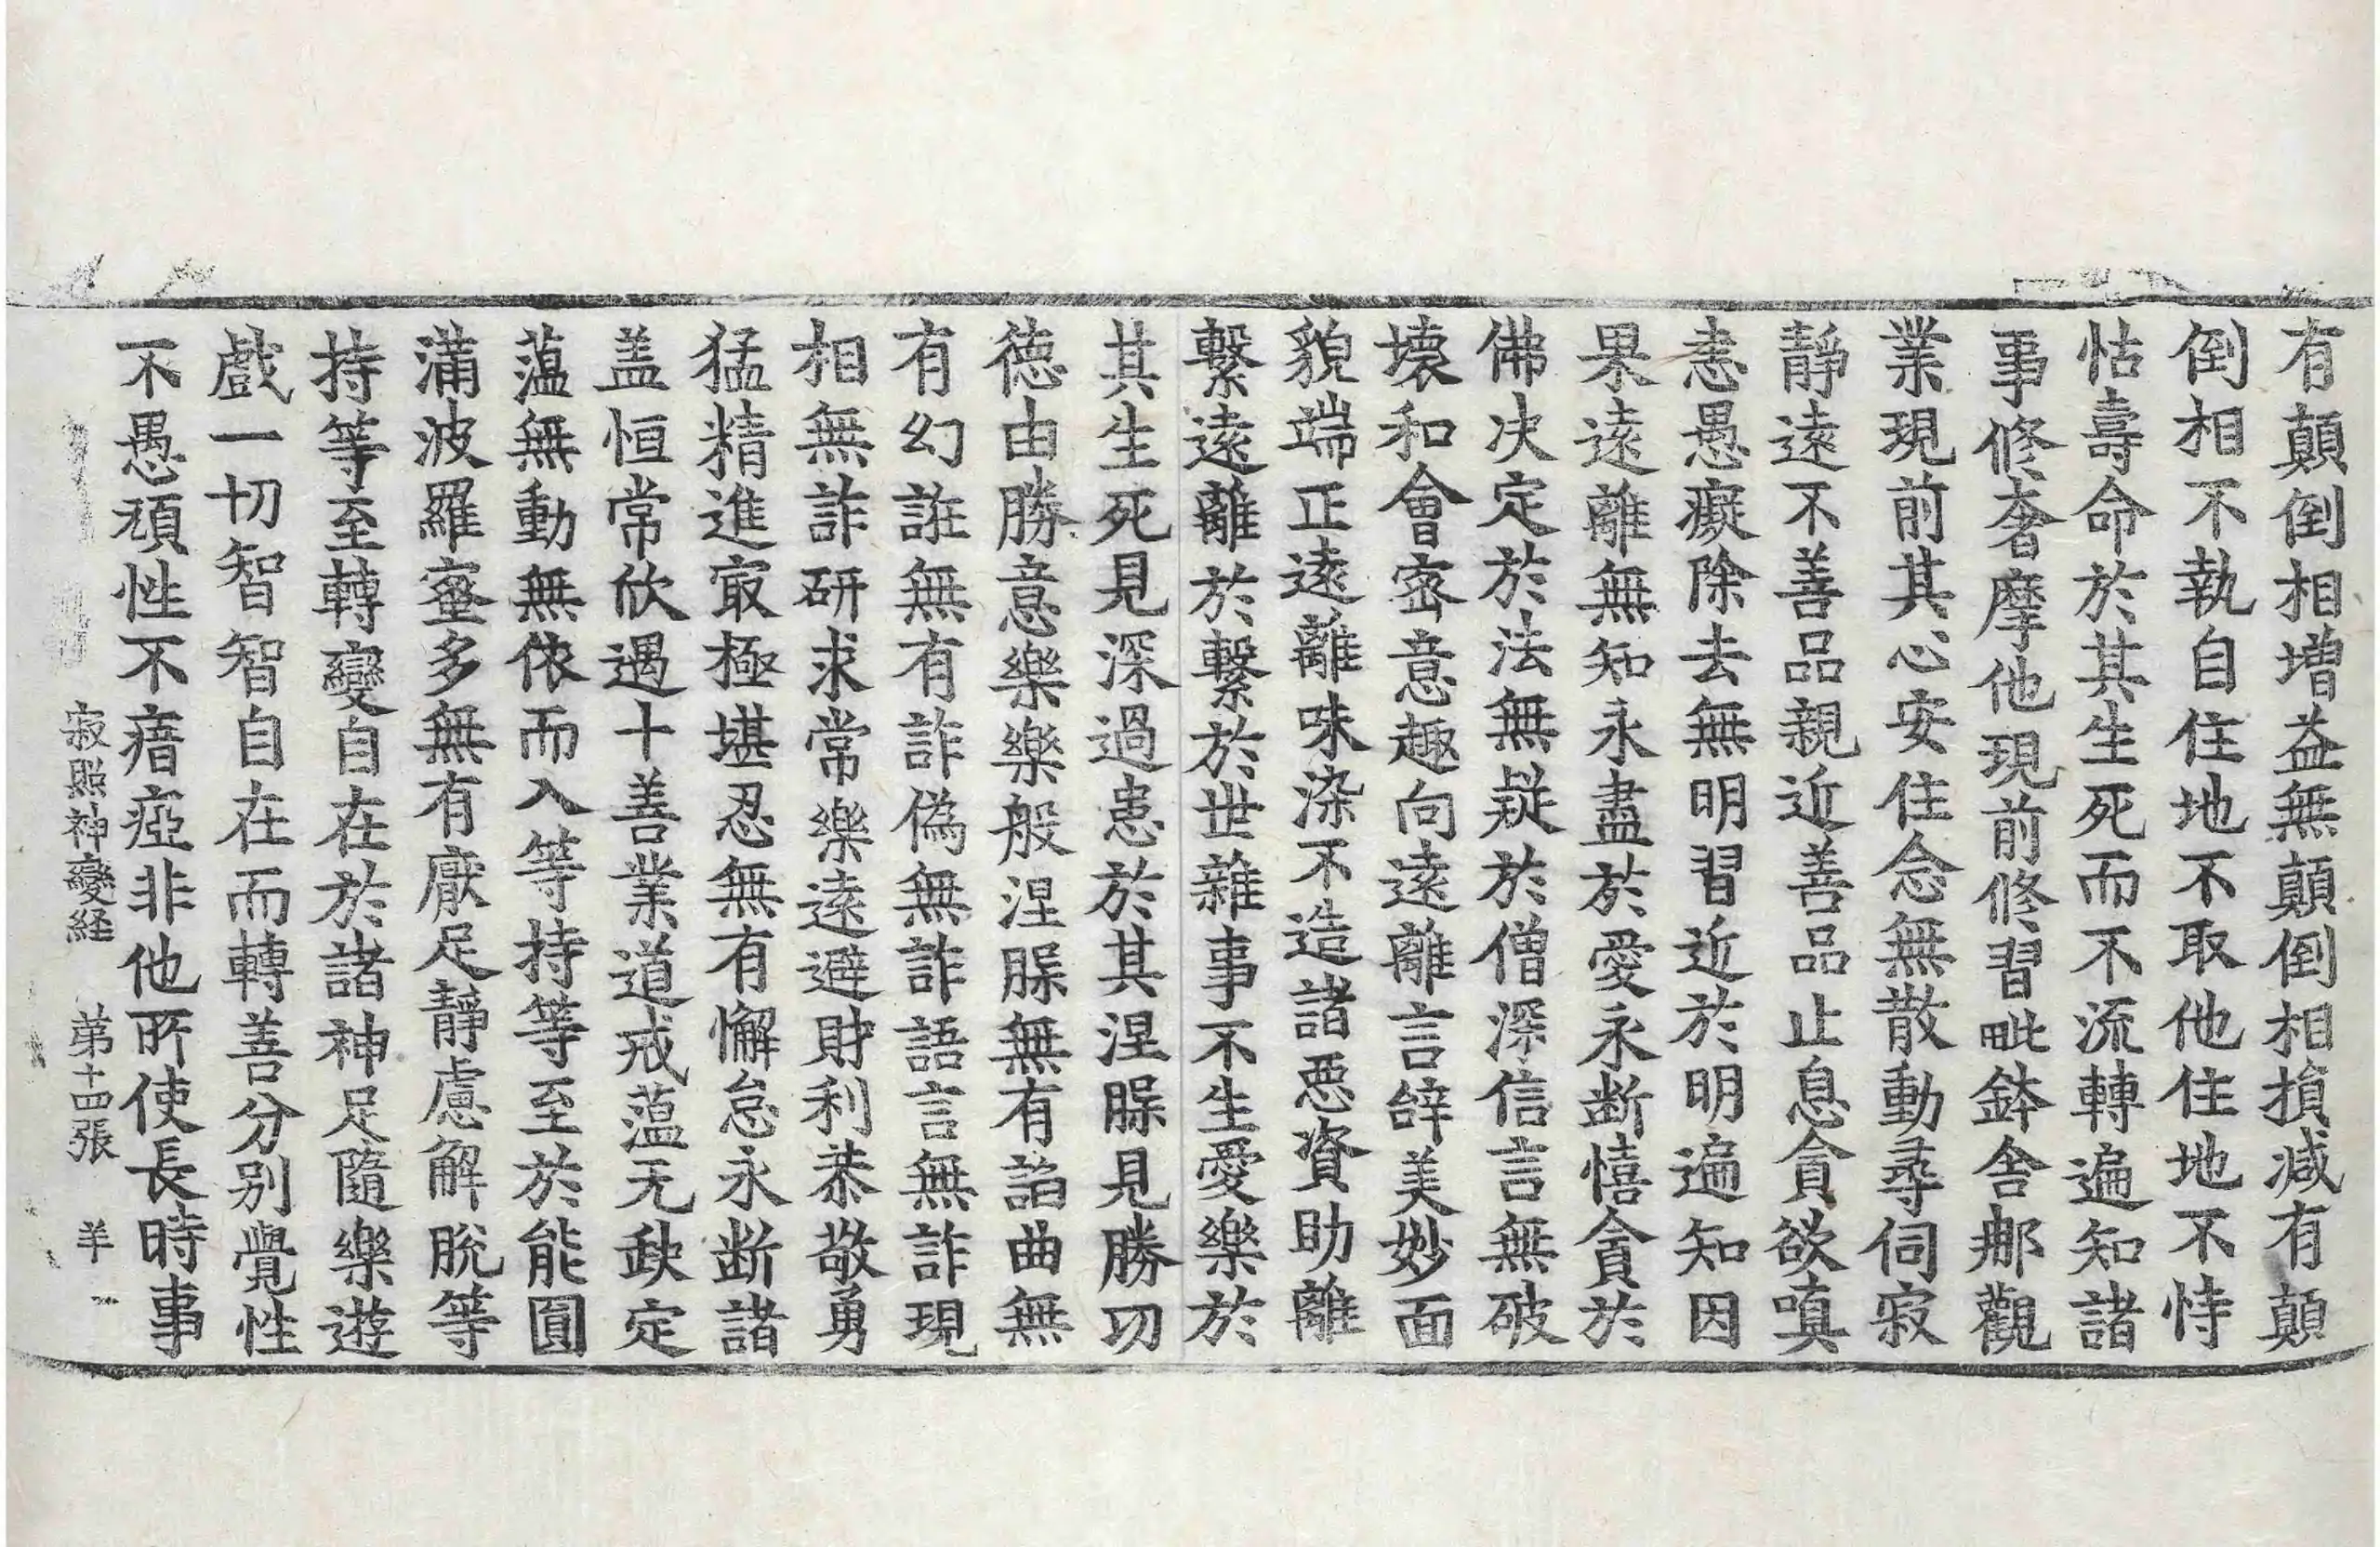 有顛倒相增益無顛倒相損减有顛
倒相不執自住地不取他住地不恃
怙壽命於其生死而不流轉遍知諸
事修奢摩他現前修習毗鉢舍那觀
業現前其心安住念無散動尋伺寂
静遠不善品親近善品止息貪欲嗔
恚愚癡除去無明習近於明遍知因
果遠離無知永盡於愛永断憘貪於
佛决定於法無疑於僧深信言無破
壞和會密意趣向遠離言辝美妙面
貌端正遠離味染不造諸惡資助離
繫遠離於繫於世雜事不生愛樂於
其生死見深過患於其涅脲見勝功
德由勝意樂樂般涅脲無有諂曲無
有幻誑無有詐偽無詐語言無詐現
相無詐研求常樂遠避財利恭敬勇
猛精進㝡極堪忍無有懈怠永断諸
盖恒常欣遇十善業道戒蕰无缺定
蕰無動無依而入等持等至於能圓
滿波羅蜜多無有厭足静慮解脱等
持等至轉變自在於諸神足隨樂遊
戲一切智智自在而轉善分別覺性
不愚頑性不瘖瘂非他所使長時事
寂照神變経　第十四張　羊一